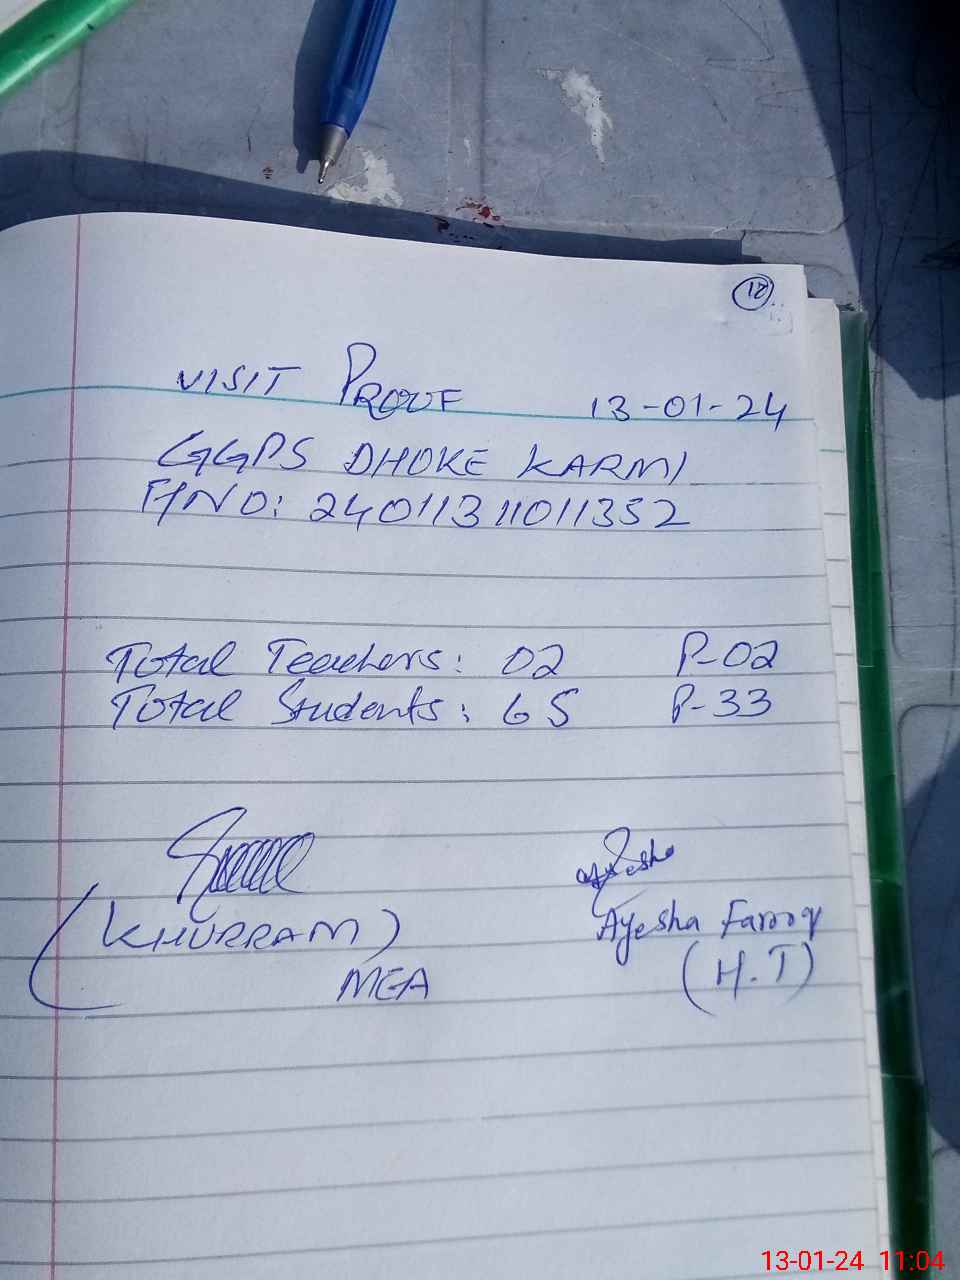 18
VISIT PROOF 13-01-24
GGPS DHOKE KARMI
F/NO: 2401131101352
Total Teachers: 02 P-02
Total Students: 65 P-33
Ayesha
(KHURRAM) Ayesha Farooq
MEA (H.T)
13-01-24 11:04